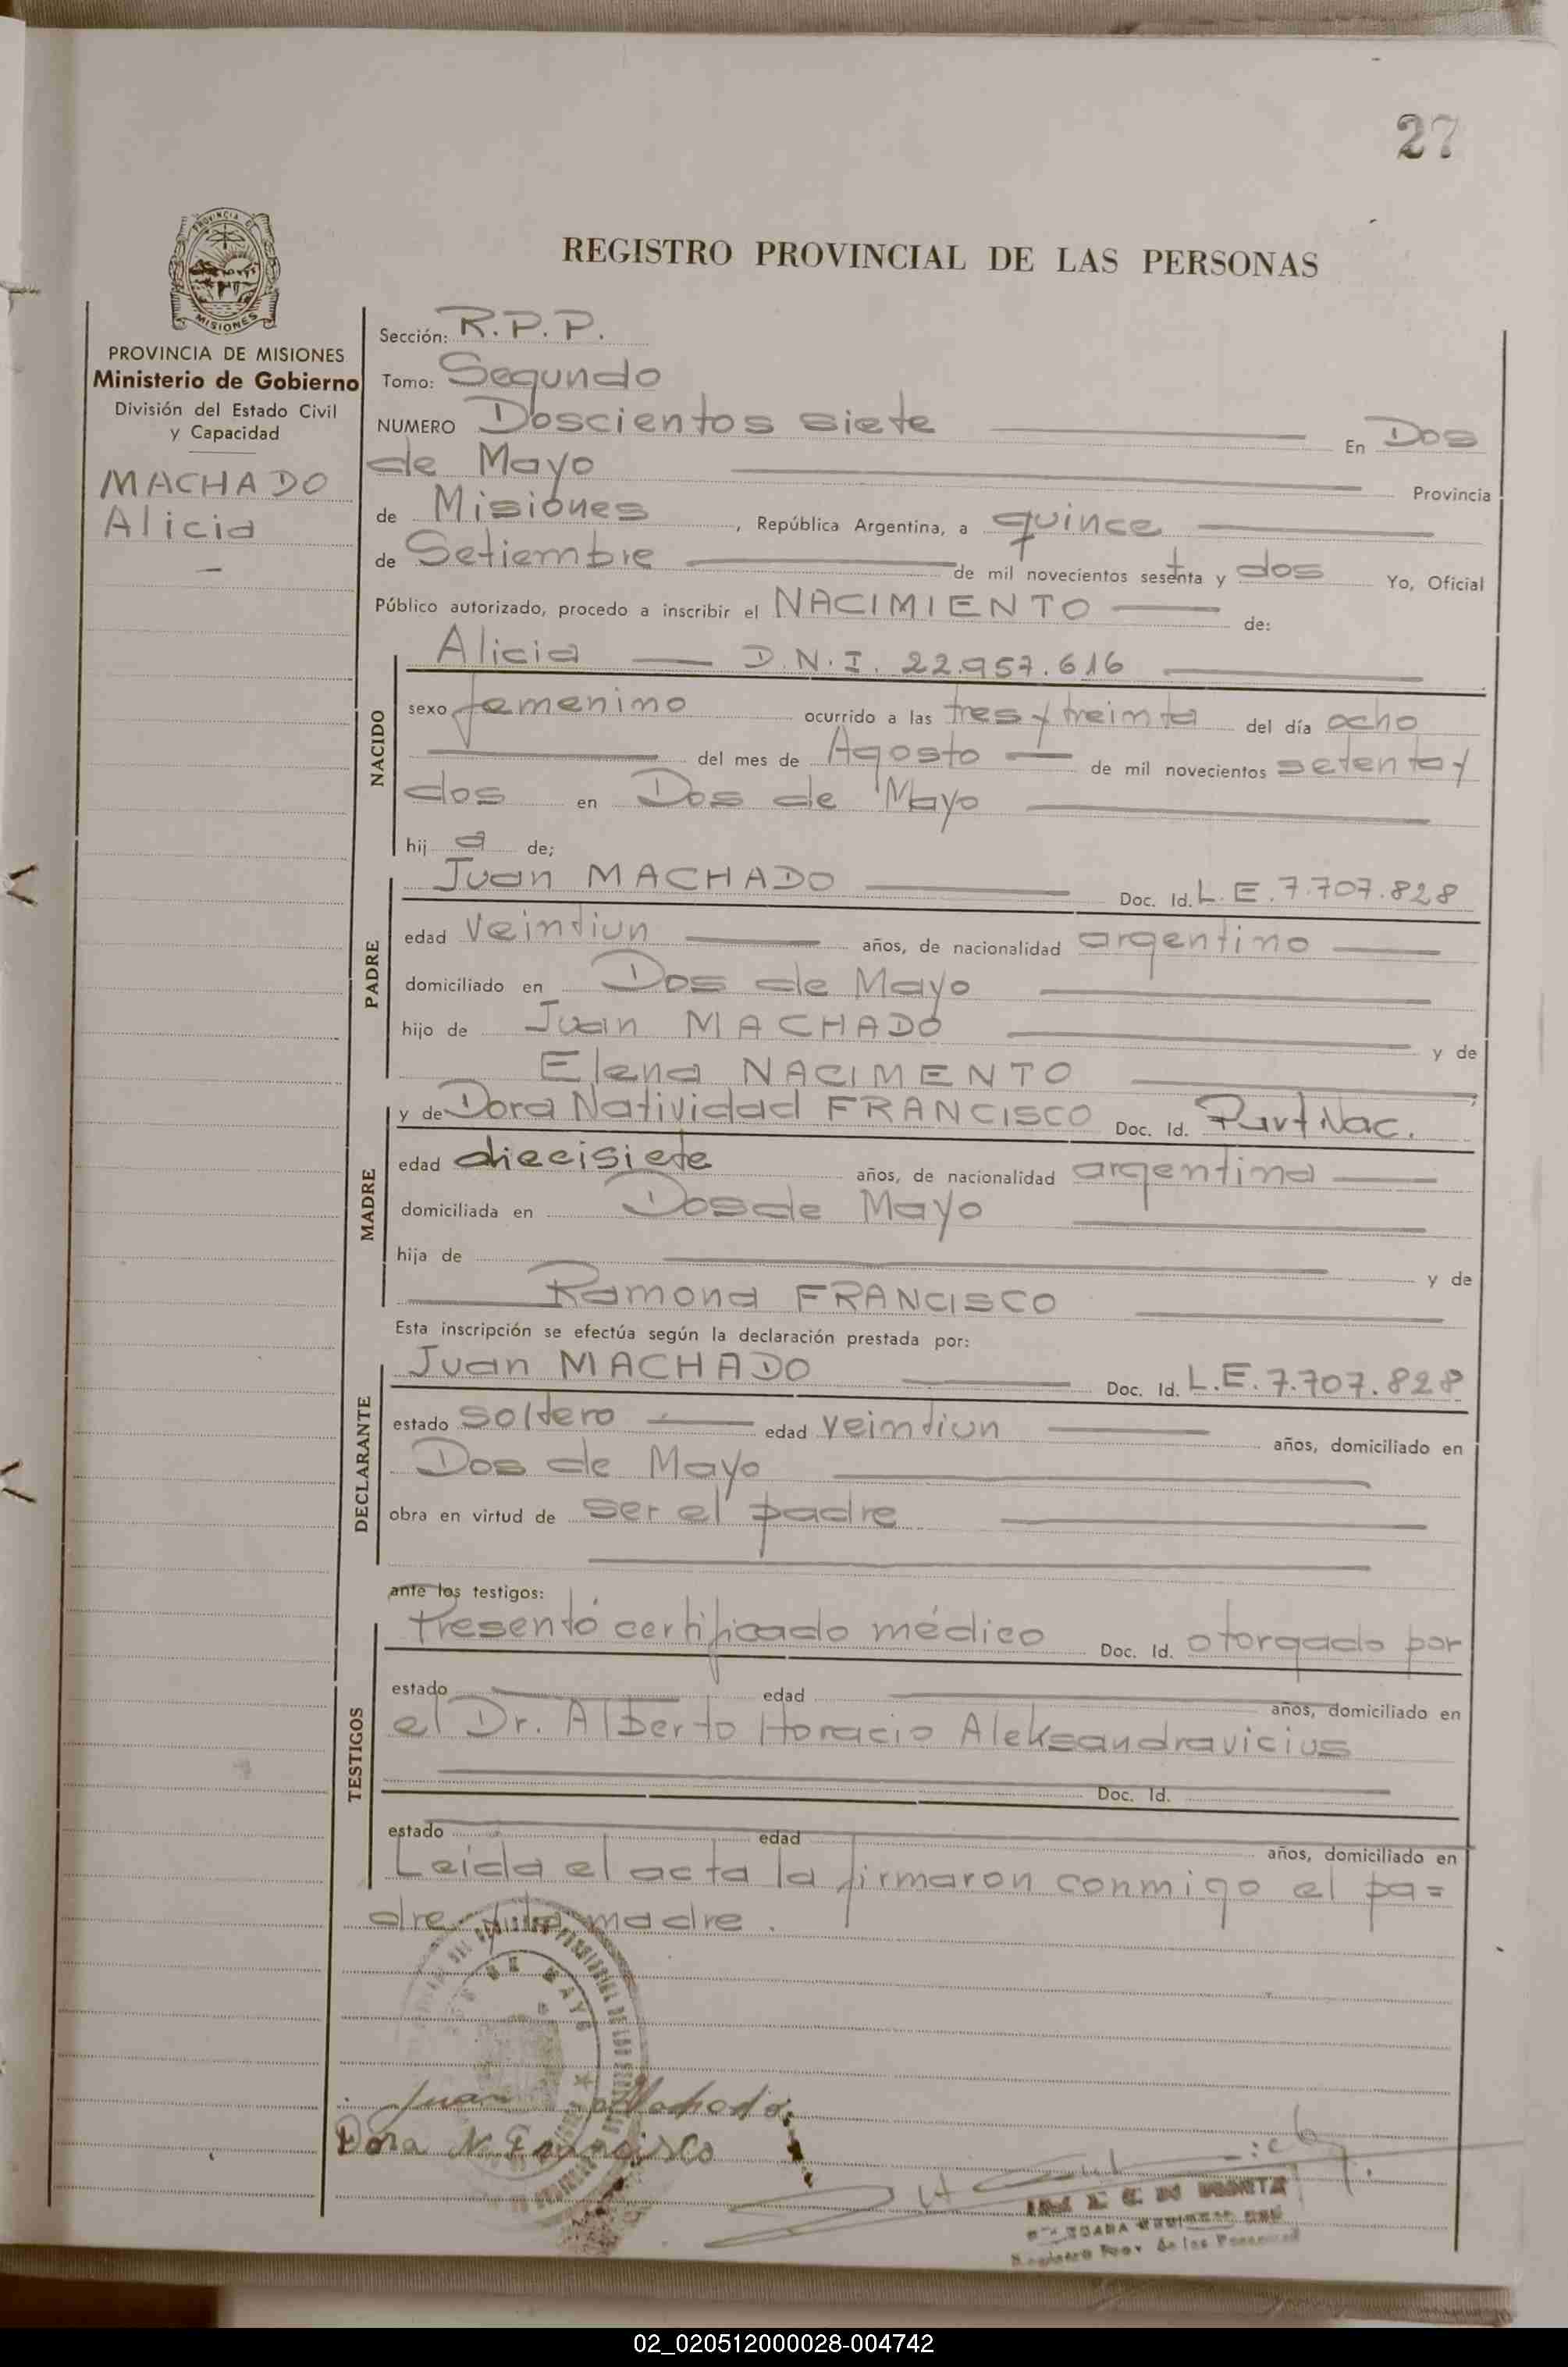 27
PROVINCIA DE
MISIONES
REGISTRO PROVINCIAL DE LAS PERSONAS
PROVINCIA DE MISIONES
Ministerio de Gobierno
División del Estado Civil
y Capacidad
MACHADO
Alicia
Sección: R.P.P.
Tomo: Segundo
NUMERO Doscientos siete En Dos
de Mayo Provincia
de Misiones, República Argentina, a quince
de Setiembre de mil novecientos sesenta y dos Yo, Oficial
Público autorizado, procedo a inscribir el NACIMIENTO de:
NACIDO
Alicia — D.N.I. 22.957.616
sexo femenino ocurrido a las tres y treinta del día ocho
del mes de Agosto — de mil novecientos setenta y
dos en Dos de Mayo
hij a de;
PADRE
Juan MACHADO Doc. Id. L.E. 7.707.828
edad veintiun años, de nacionalidad argentino
domiciliado en Dos de Mayo
hijo de Juan MACHADO y de
Elena NACIMENTO
MADRE
y de Dora Natividad FRANCISCO Doc. Id. Part Nac.
edad diecisiete años, de nacionalidad argentina
domiciliada en Dos de Mayo
hija de y de
Ramona FRANCISCO
Esta inscripción se efectúa según la declaración prestada por:
DECLARANTE
Juan MACHADO Doc. Id. L.E. 7.707.828
estado soltero edad veintiun años, domiciliado en
Dos de Mayo
obra en virtud de ser el padre
ante los testigos:
TESTIGOS
Presentó certificado médico Doc. Id. otorgado por
estado edad años, domiciliado en
el Dr. Alberto Horacio Aleksandravicius
Doc. Id.
estado edad años, domiciliado en
Leida el acta la firmaron conmigo el pa=
dre y la madre.
DE MAYO
Juan Machado
Dora N. Francisco
Registro Prov. de las Personas
02_020512000028-004742